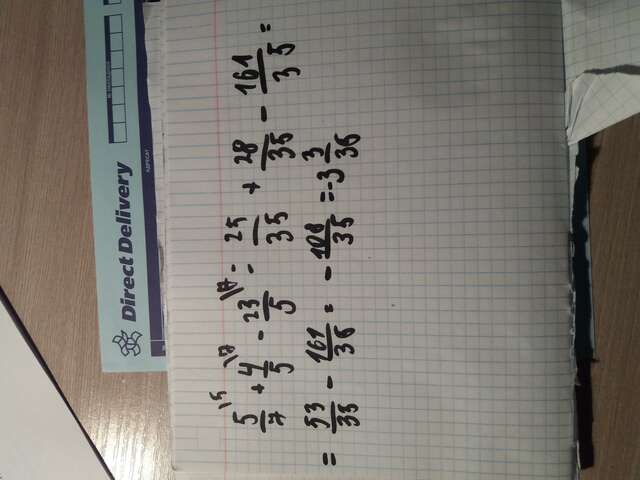 Direct Delivery
5/7 \5 + 4/5 \7 - 23/5 \7 = 25/35 + 28/35 - 161/35 =
= 53/35 - 161/36 = - 108/35 = -3 3/36